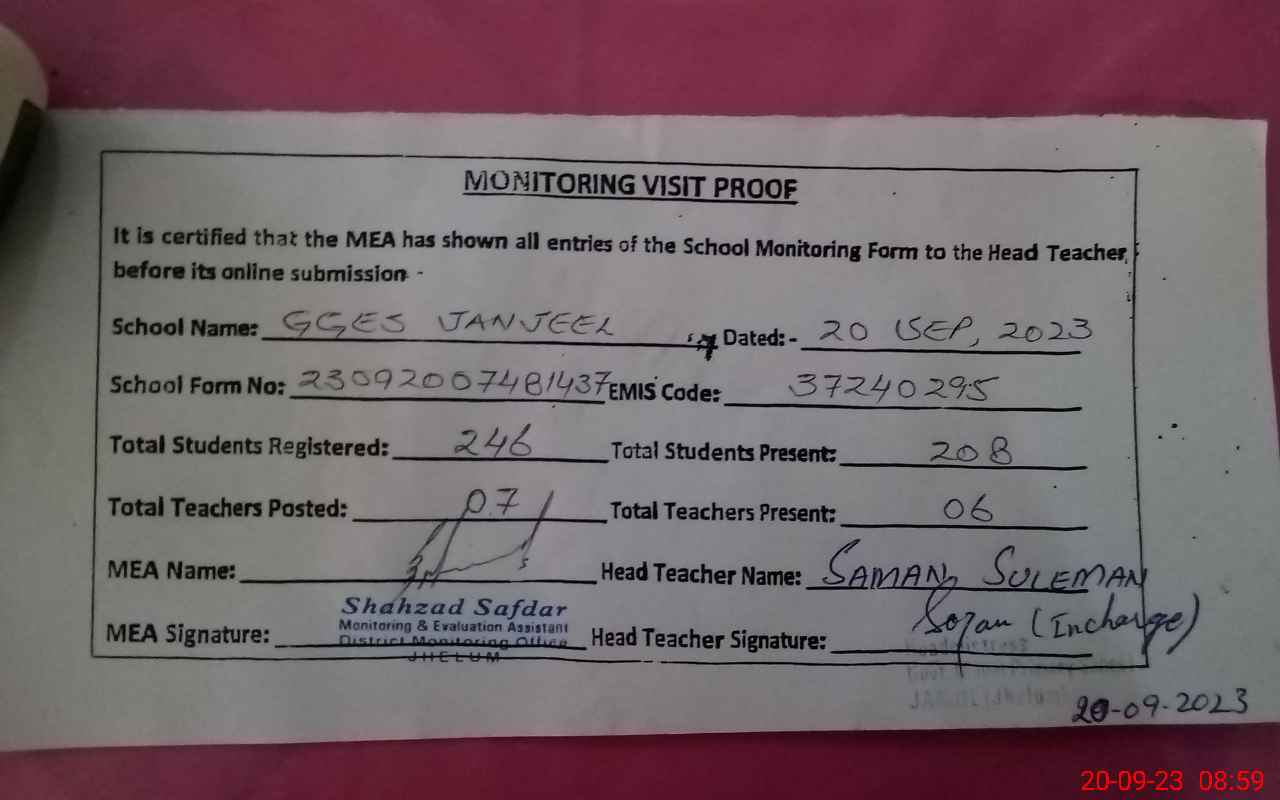 MONITORING VISIT PROOF
It is certified that the MEA has shown all entries of the School Monitoring Form to the Head Teacher
before its online submission -
School Name: GGES JANJEEL Dated:- 20 SEP, 2023
School Form No: 230920007481437 EMIS Code: 37240295
Total Students Registered: 246 Total Students Present: 208
Total Teachers Posted: 07 Total Teachers Present: 06
MEA Name: Head Teacher Name: SAMAN SULEMAN
Shahzad Safdar
Monitoring & Evaluation Assistant
District Monitoring Office
JHELUM
MEA Signature: Head Teacher Signature: (Incharge)
20-09-2023
20-09-23 08:59